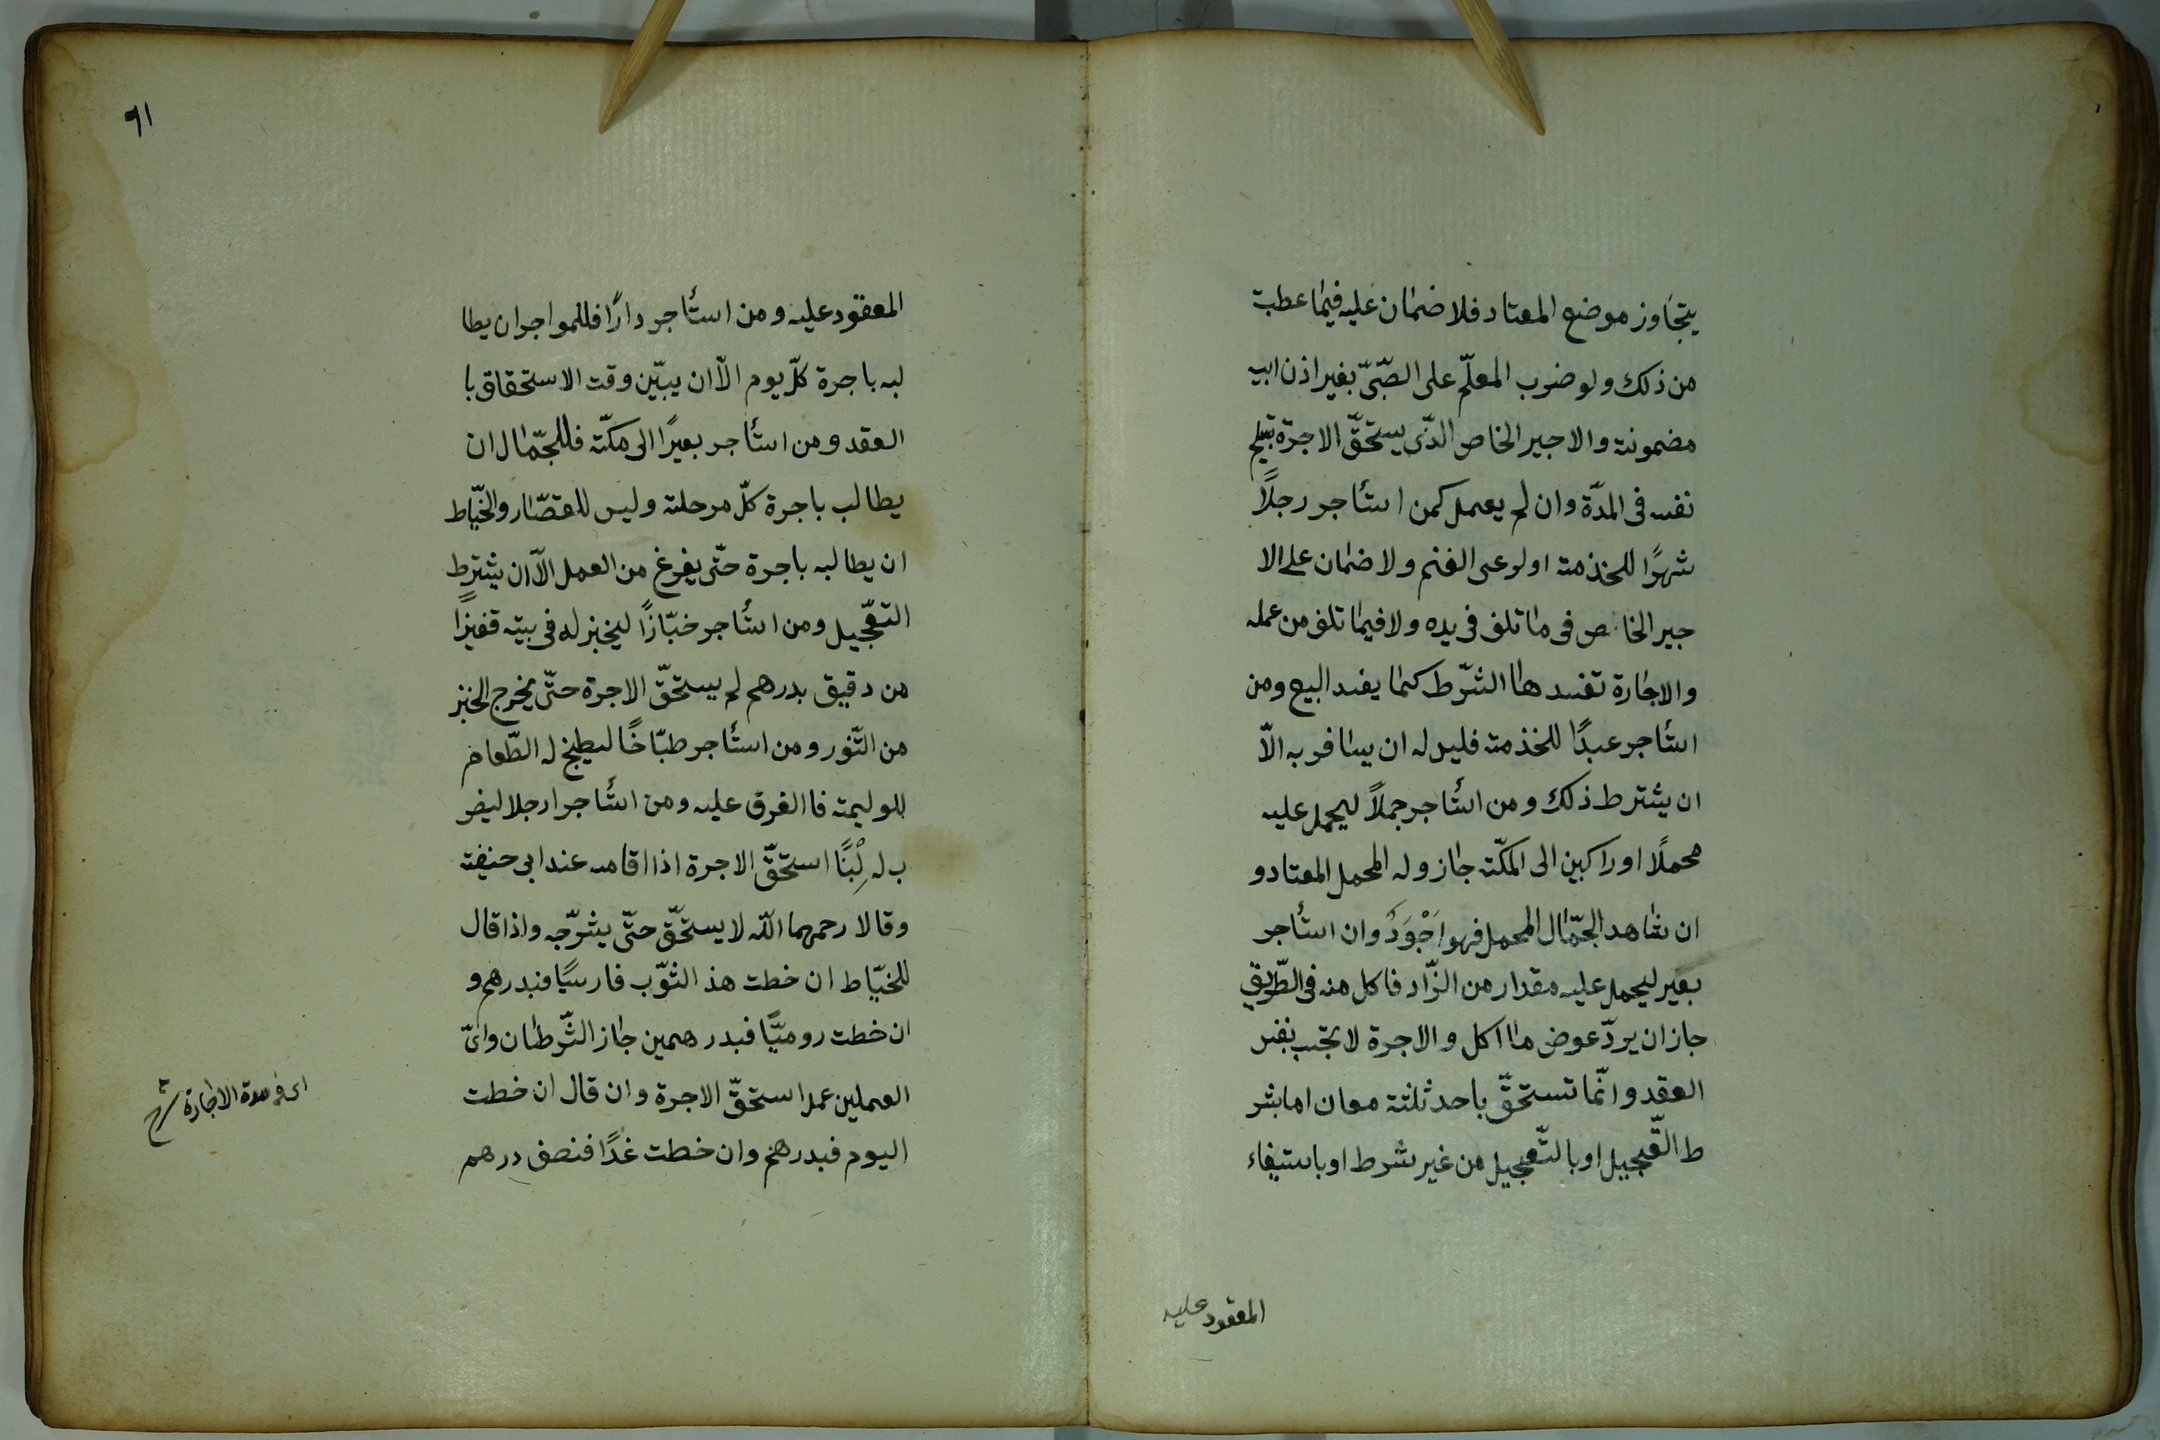 يتجاوز موضع المعتاد فلا ضمان عليه فيما عطبت
من ذلك ولو ضرب المعلّم على الصّبىّ بغير اذن ابيه
مضمونة والاجير الخاص الذّى يستحقّ الاجرة بتسليم
نفسه فى المدّة وان لم يعمل كمن استأجر رجلًا
شهرًا للخذمة او لرعى الغنم ولا ضمان على الا
جير الخاص فى ما تلف فى يده ولا فيما تلف من عمله
والاجارة تفسدها الشّرط كما يفسد البيع ومن
استأجر عبدًا للخذمة فليس له ان يسافر به الّا
ان يشترط ذلك ومن استأجر جملًا ليحمل عليه
محملًا او راكبين الى المكّة جاز وله المحمل المعتاد و
ان شاهد الجّمال المحمل فهو اَجْوَدُ وان استأجر
بعير ليحمل عليه مقدار من الزّاد فاكل منه فى الطّريق
جاز ان يردّ عوض ما اكل والاجرة لا تجب بنفس
العقد وانّما تستحقّ باحد ثلثة معان اما بشر
ط التّعجيل او بالتّعجيل من غير شرط او باستيفاء
المعقود عليه
٩١
المعقود عليه ومن استأجر دارًا فللمواجر ان يطا
لبه باجرة كلّ يوم الّا ان يبيّن وقت الاستحقاق با
العقد ومن استأجر بعيرًا الى مكّة فللجّمال ان
يطالب باجرة كلّ مرحلة وليس للقصّار والخيّاط
ان يطالبه باجرة حتّى يفرغ من العمل الّا ان يشترط
التعّجيل ومن استأجر خبّازًا ليخبز له فى بيته قفيزًا
من دقيق بدرهم لم يستحقّ الاجرة حتّى يخرج الخبز
من التّنور ومن استأجر طبّاخًا ليطبخ له الطّعام
للوليمة فا الغرق عليه ومن استأجر ارجلا ليضر
ب له لِبْنًا استحقّ الاجرة اذا اقامه عند ابى حنيفة
وقالا رحمهما اللّه لا يستحقّ حتّى يشرّجه واذا قال
للخيّاط ان خطت هذ الثوّب فارسيًا فبدرهم و
ان خطت روميًّا فبدرهمين جاز الشّرطان واىّ
العملين عمل استحقّ الاجرة وان قال ان خطت
اليوم فبدرهم وان خطت غدًا فنصف درهم
اى فى مدة الاجارة شرح